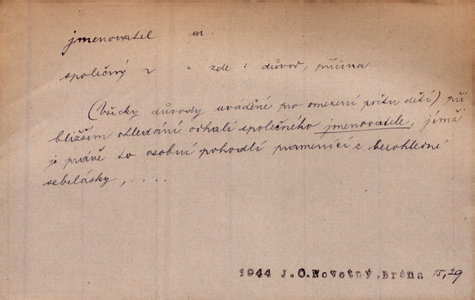 jmenovatel m.
společný v - zde : důvod, příčina
(Všecky důvody uváděné pro omezení počtu dětí) při
bližším ohledání odhalí společného jmenovatele, jímž
je právě to osobní pohodlí pramenící z bezohledné
sebelásky, . . . .
1944 J.O.Novotný, Brána 15,29